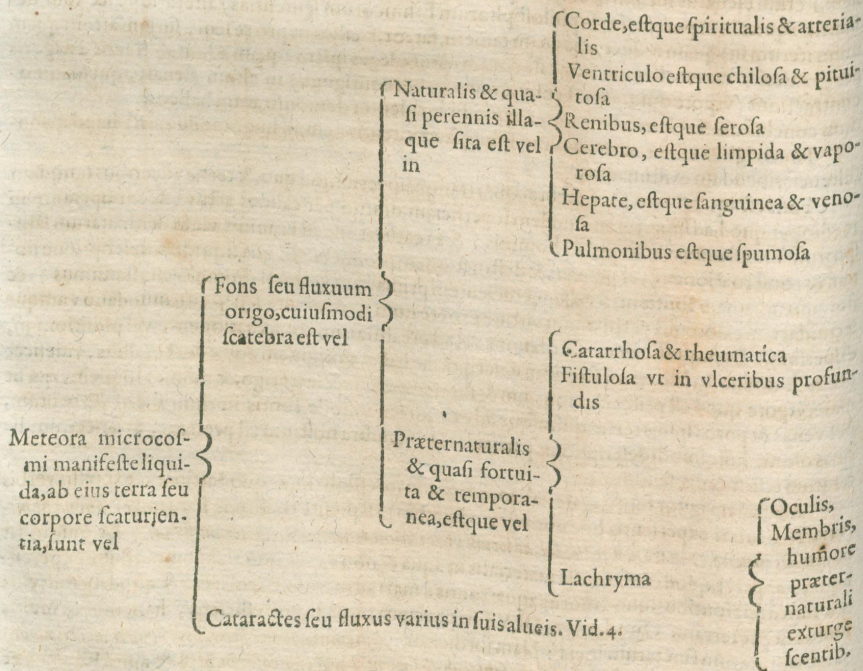 Meteora microcoſ-
mi manifeſte liqui-
da, ab eius terra ſeu
corpore ſcaturjen-
tia, ſunt vel
Fons ſeu fluxuum
origo, cuiuſmodi
ſcatebra eſt vel
Naturalis & qua-
ſi perennis illa-
que ſita eſt vel
in
Corde, eſtque ſpiritualis & arteria-
lis
Ventriculo eſtque chiloſa & pitui-
toſa
Renibus, eſtque ſeroſa
Cerebro, eſtque limpida & vapo-
roſa
Hepate, eſtque ſanguinea & veno-
ſa
Pulmonibus eſtque ſpumoſa
Præternaturalis
& quaſi fortui-
ta & tempora-
nea, eſtque vel
Catarrhoſa & rheumatica
Fiſtuloſa vt in vlceribus profun-
dis
Lachryma
Oculis,
Membris,
humore
præter-
naturali
exturge
ſcentib.
Cataractes ſeu fluxus varius in ſuis alueis. Vid. 4.